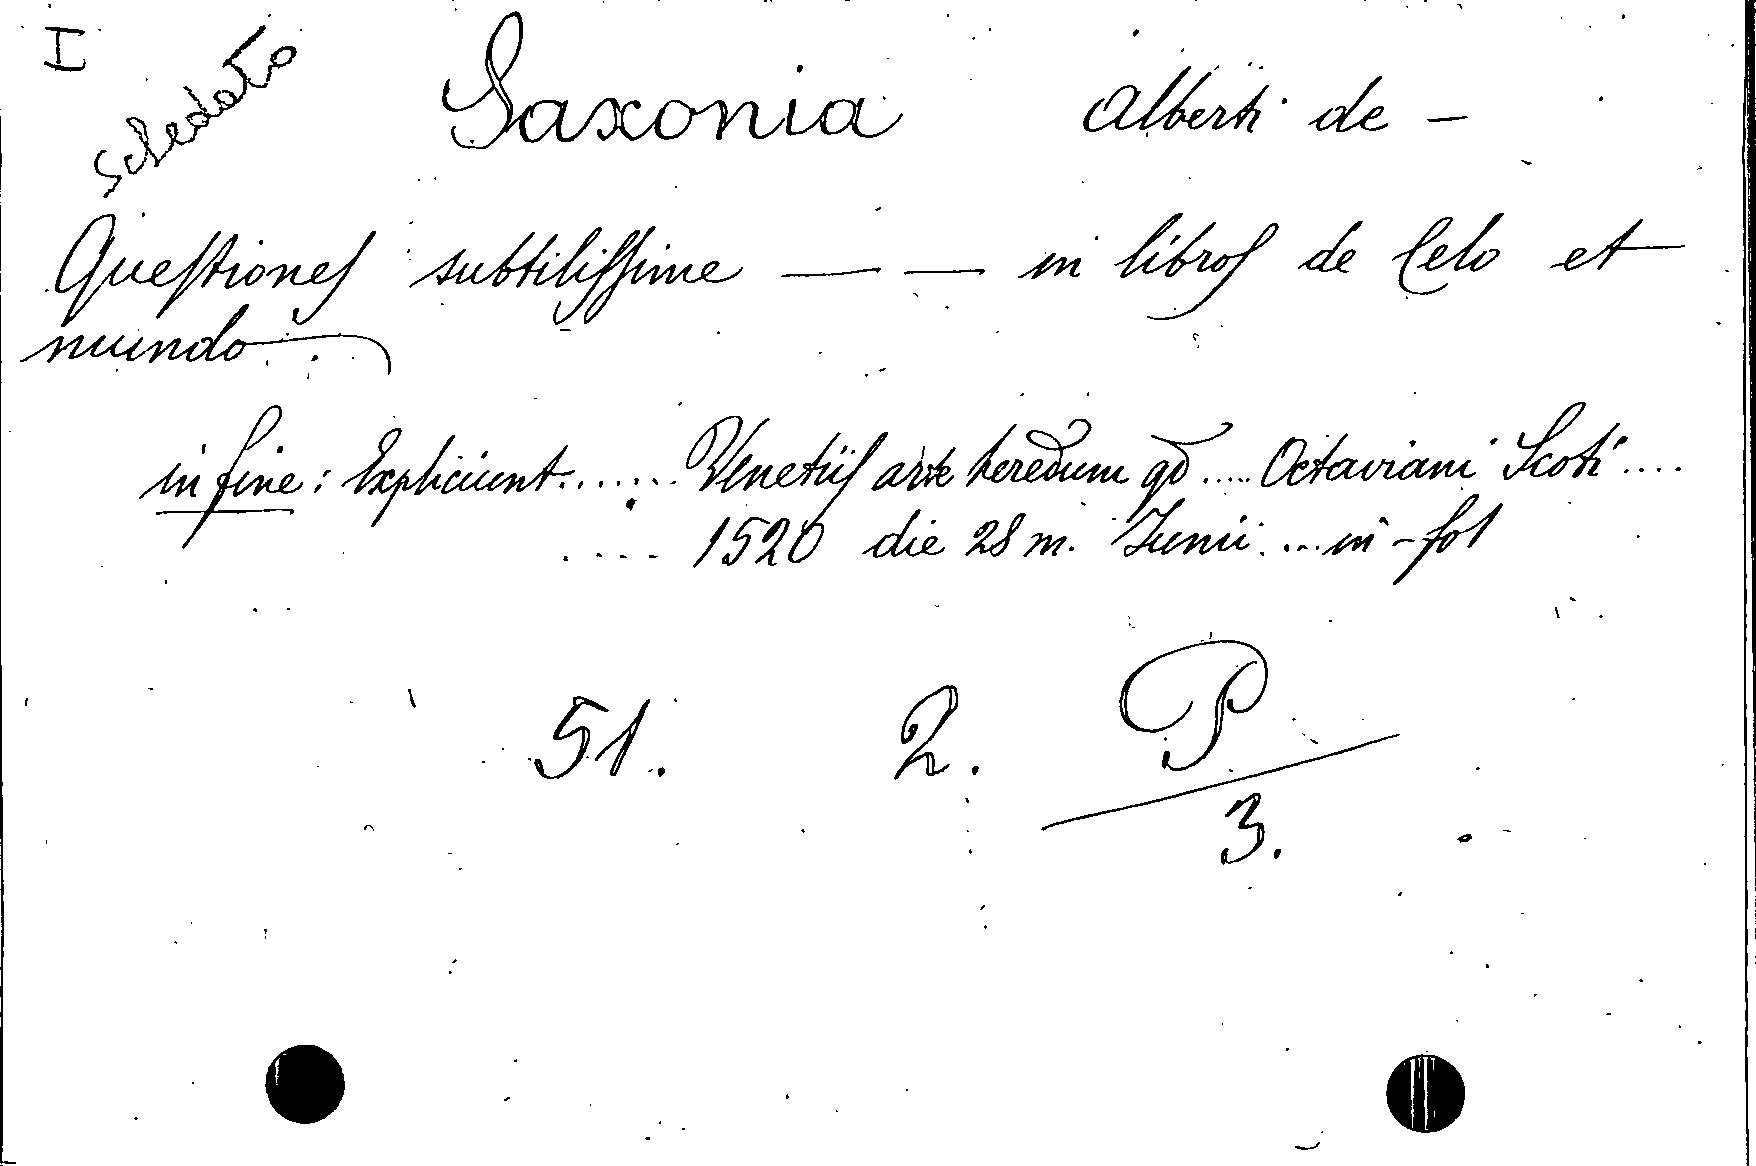 I
schedato
Saxonia Alberti de -
Queſtioneſ subtiliſſime — — in libroſ de Celo et
mundo
in fine: Expliciunt....... Venetiiſ arte heredum qd ..... Octaviani Scoti ....
.... 1520 die 28 m. Junii .... in-fol
51. 2. P
3.